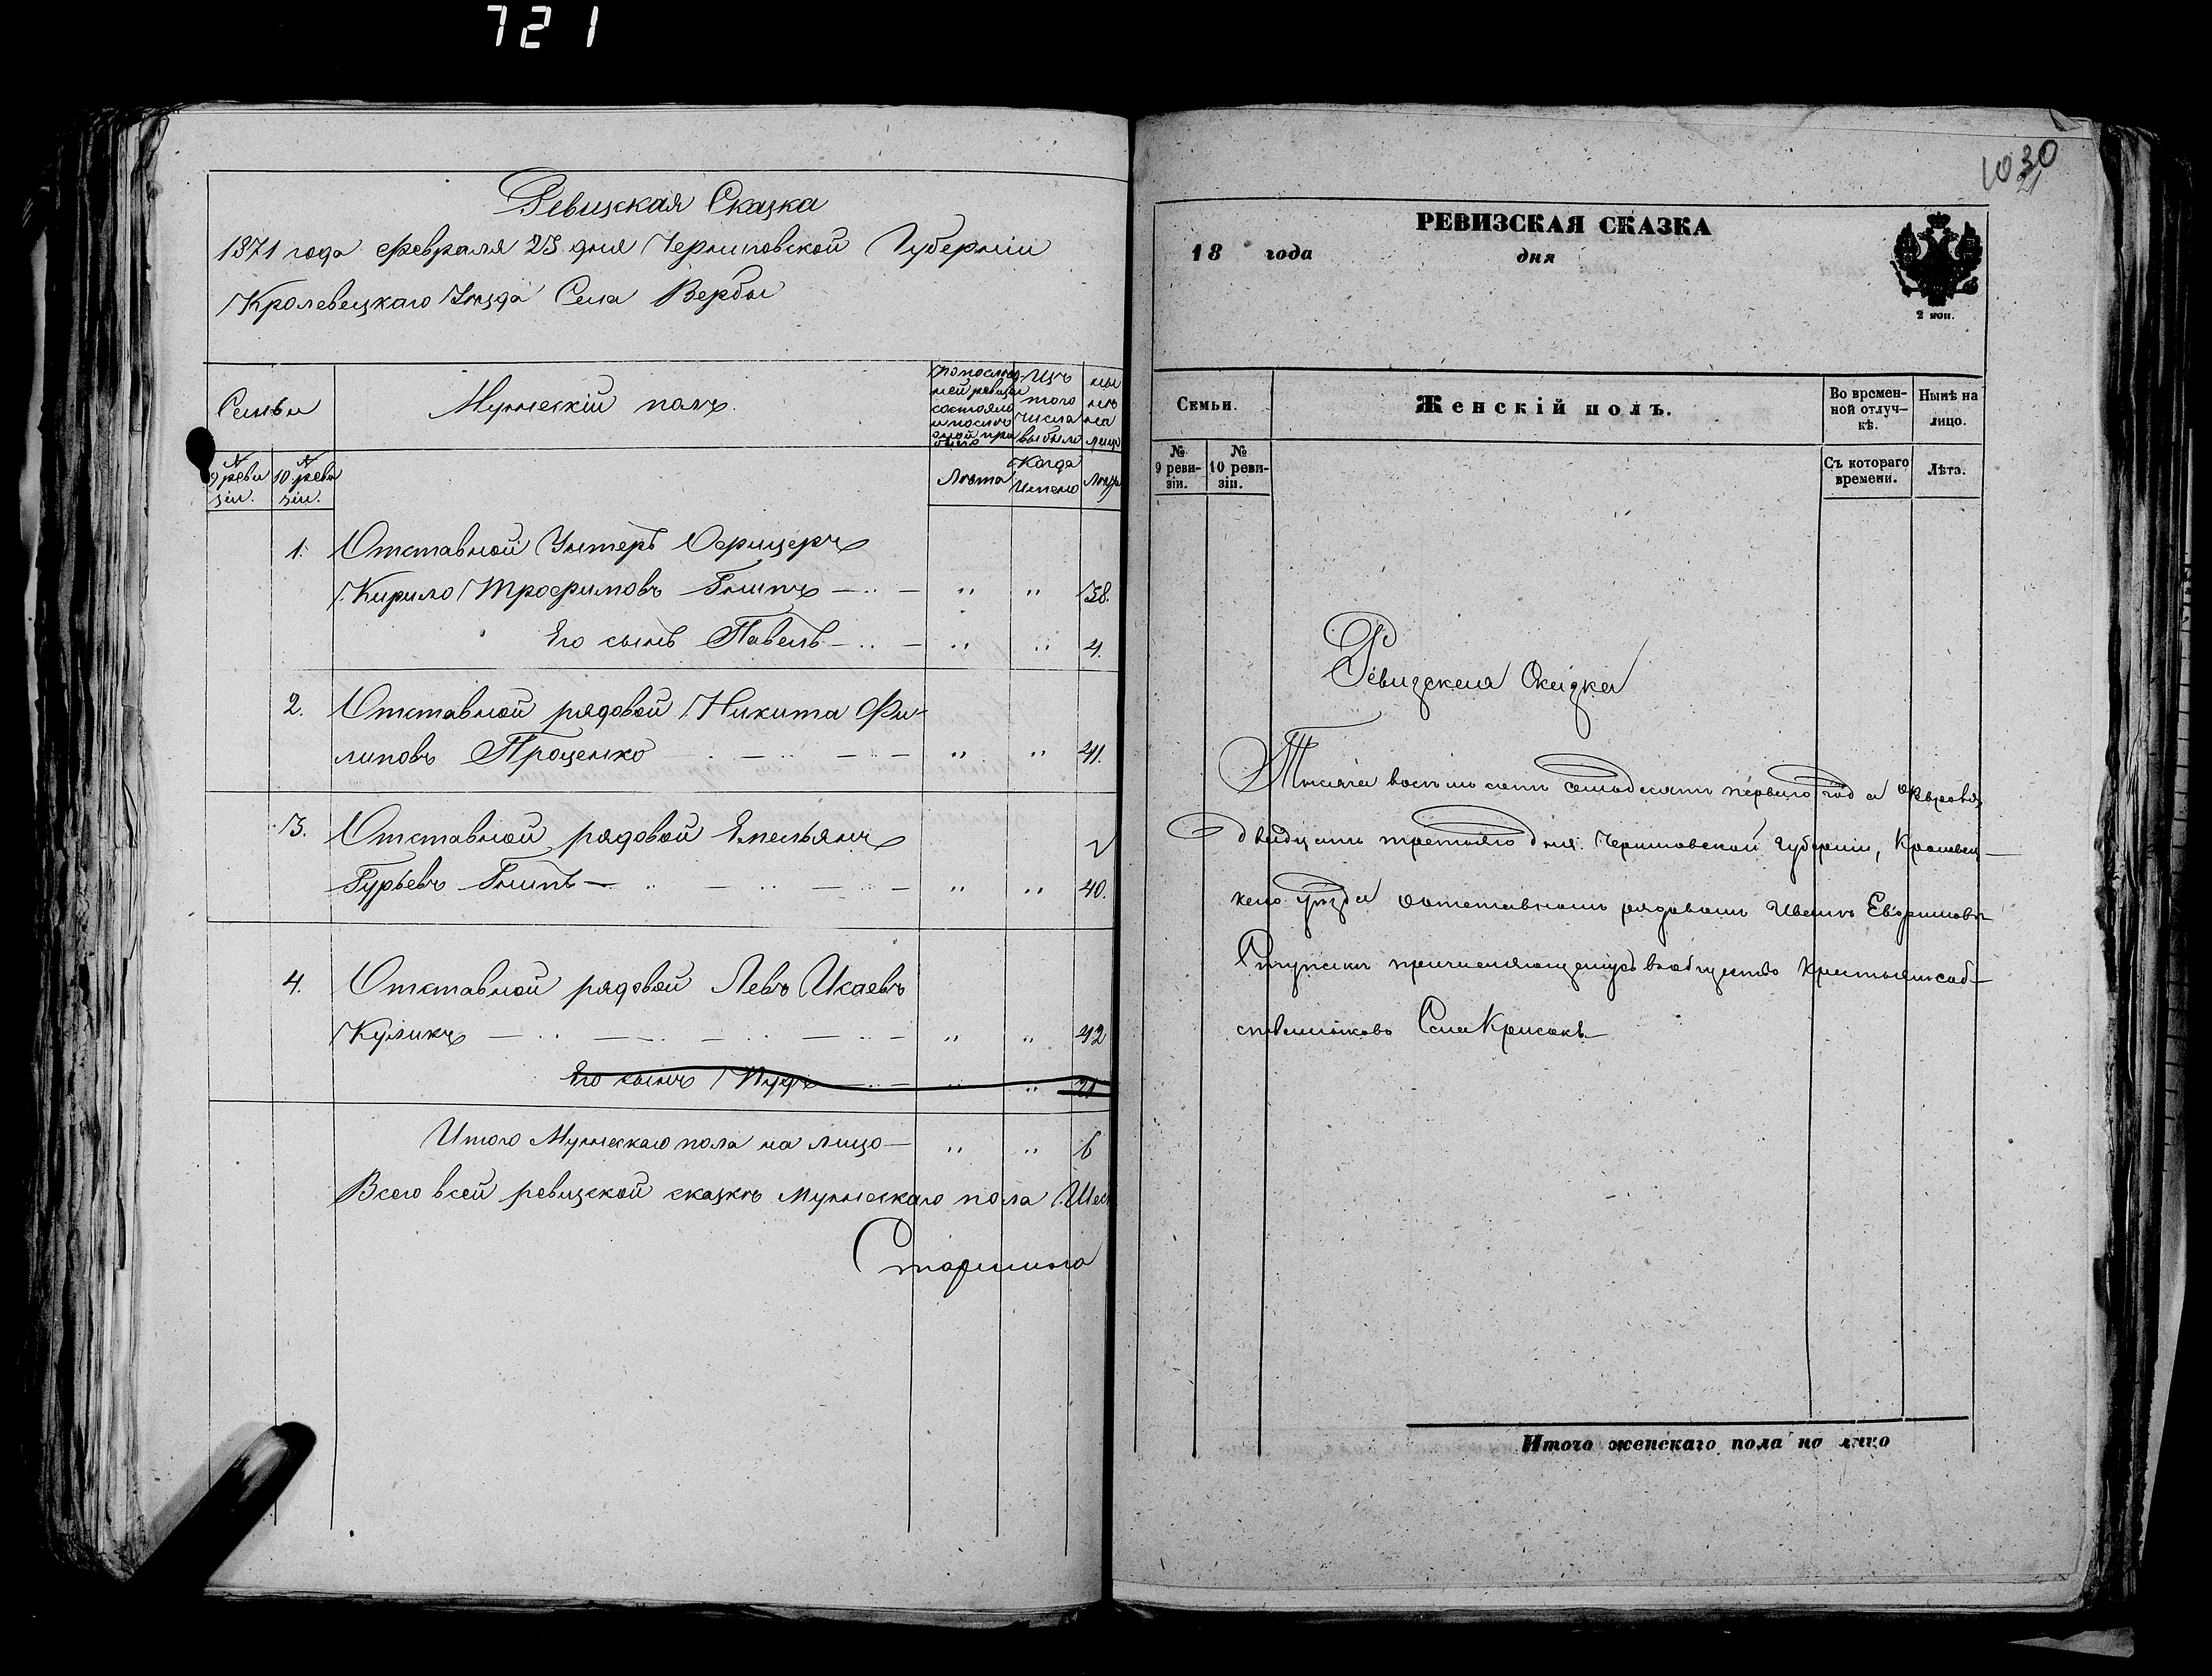 721
Ревизская Сказка
1871 года февраля 23 дня Черниговской Губернии
Кролевецкаго Уезда Села Вербы
Семьи
Мужескій полъ.
По послед-
ней ревизіи
состояло
и после
оной при
было
Изъ
того
числа
выбыло
ны
не
на
лицо
№
9 реви
зіи.
№
10 реви
зіи.
Лета
Когда
Именно
Лета
1. Отставной Унтеръ Офицеръ
Кирило Трофимовъ — " " 38.
Его сынъ Павелъ — " " 4.
2. Отставной рядовой Никита Фи-
липовъ Проценко — " " 41.
3. Отставной рядовой Емельянъ
Гурьевъ — " " 40.
4. Отставной рядовой Левъ Исаевъ
Куликъ — " " 42
Его сынъ — " " 21
Итого Мужескаго пола на лицо — " " 6
Всего всей ревизской сказке мужескаго пола Шест
Старшина
10 30
21
РЕВИЗСКАЯ СКАЗКА
18 года дня
2 коп.
Семьи.
Женскій полъ.
Во времен-
ной отлуч-
кѣ.
Нынѣ на
лицо.
№
9 реви-
зіи.
№
10 реви-
зіи.
Съ котораго
времени.
Лѣта.
Ревизская Сказка
Тысяча восемь сотъ семьдесятъ первого года февраля
двадцать третьяго дня. Черниговской губерніи, Кролевец-
каго уезда оботставномъ рядовомъ Иване Евфимове
причисляющемусь вобщество Крестьянъ соб-
ственниковъ Села
Итого женскаго пола на лицо